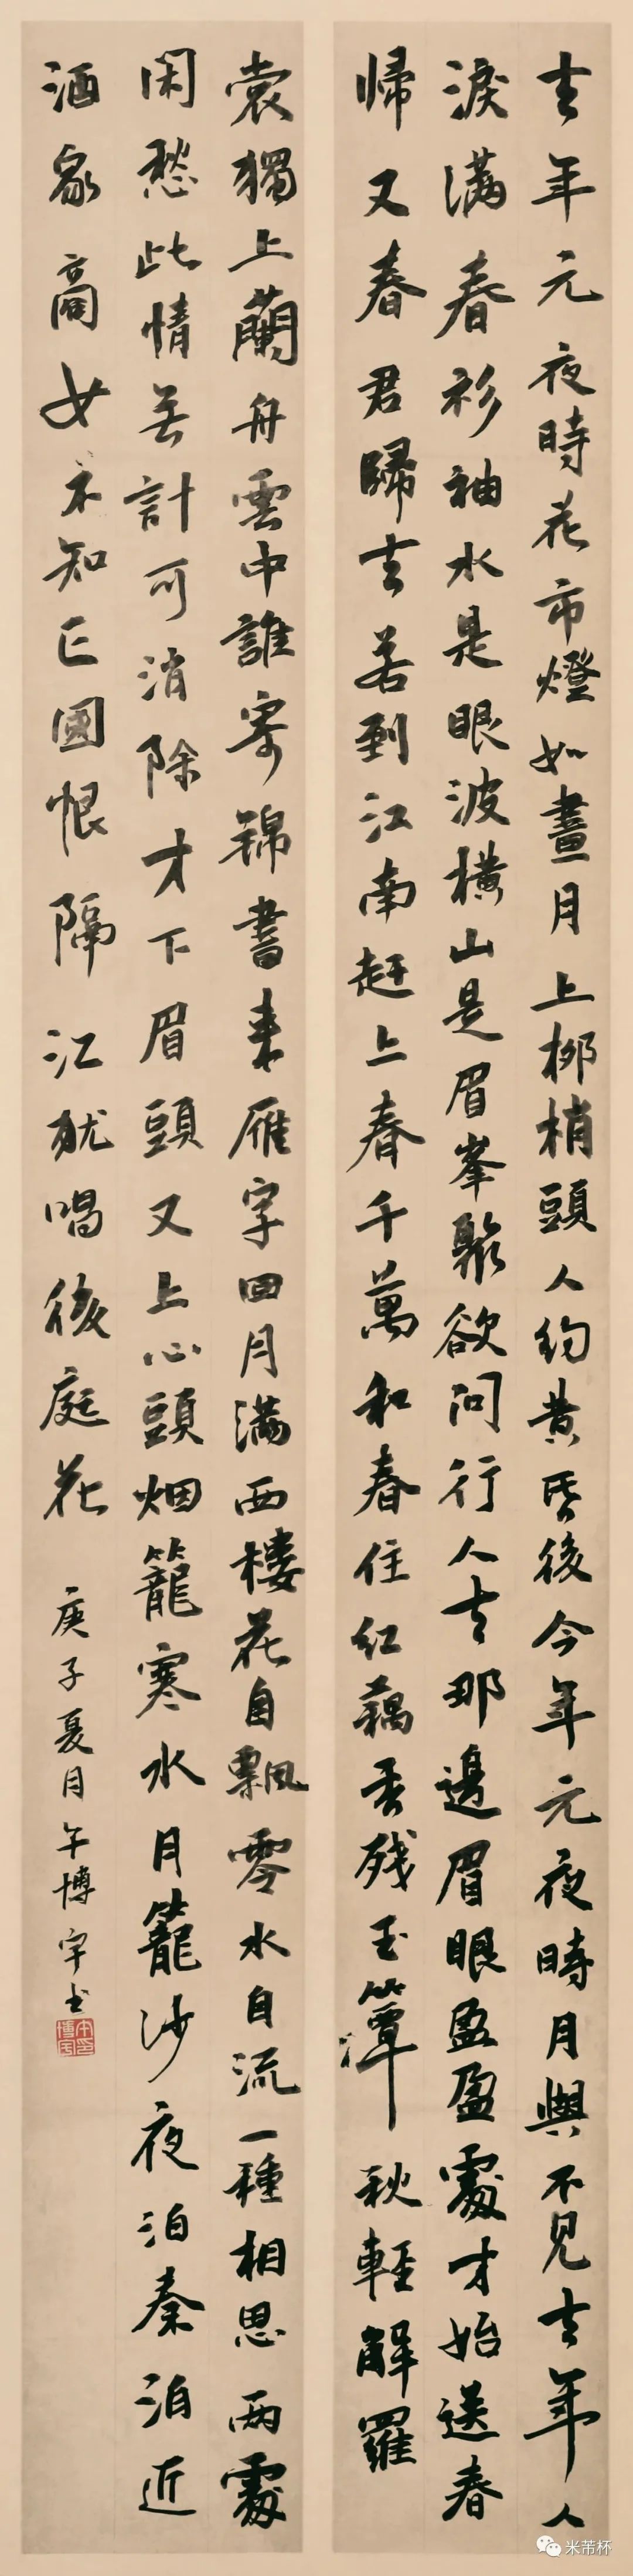 去年元夜時花市燈如晝月上柳梢頭人約黄昏後今年元夜時月與不見去年人
淚满春衫袖水是眼波橫山是眉峯聚欲问行人去那邊眉眼盈盈處才始送春
帰又春君歸去若到江南赶上春千萬和春住红藕香残玉簟秋輕解羅
裳獨上蘭舟雲中誰寄锦書来雁字回月满西樓花自飄零水自流一種相思兩處
闲愁此情無計可消除才下眉頭又上心頭烟籠寒水月籠沙夜泊秦泊近
酒家商女不知亡國恨隔江犹唱後庭花
庚子夏月午博宇书
米芾杯